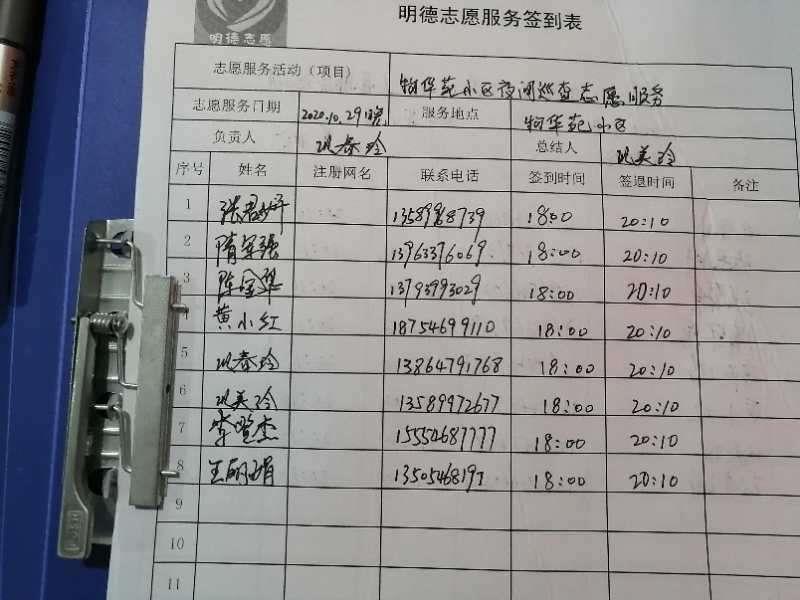 明德志愿
明德志愿服务签到表
志愿服务活动（项目） 物华苑小区夜间巡查志愿服务
志愿服务门期 2020.10.29晚 服务地点 物华苑小区
负责人 巩春玲 总结人 巩美玲
序号 姓名 注册网名 联系电话 签到时间 签退时间 备注
1 张 13589968739 18:00 20:10
2 隋军强 13963376069 18:00 20:10
3 陈金华 13793993029 18:00 20:10
黄小红 18754699110 18:00 20:10
5 巩春玲 13864791768 18:00 20:10
6 巩美玲 13589972677 18:00 20:10
7 李登杰 15554687777 18:00 20:10
8 王丽娟 1350546819 18:00 20:10
9
10
11